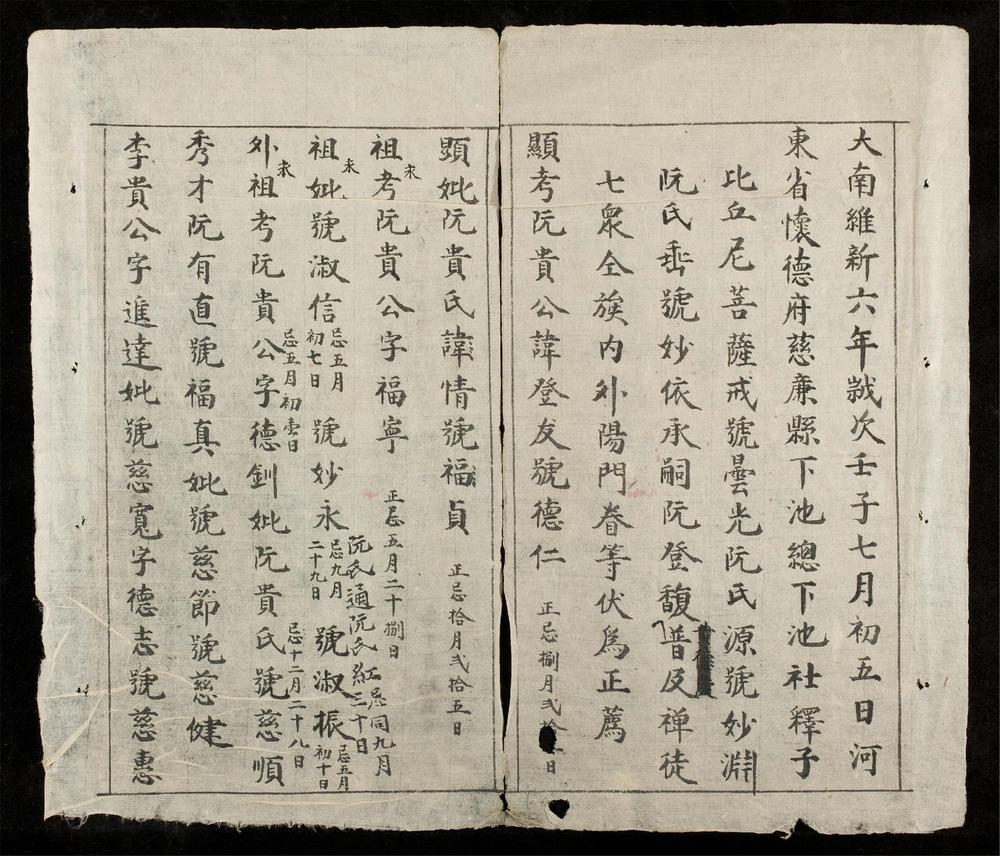 大南維新六年歲次壬子七月初五日河
東省懷德府慈廉縣下池總下池社釋子
比丘尼菩薩戒號曇光阮氏源號妙淵
阮氏垂號妙依承嗣阮登馥普及禅徒
七衆全族内外陽門眷等伏爲正薦
顯考阮貴公諱登友號德仁 正忌捌月弍拾日
顕妣阮貴氏諱情號福貞 正忌拾月弍拾五日
祖考阮貴公字福寧 正忌五月二十捌日
祖妣號淑信 忌五月初七日 號妙永 忌九月二十九日 號淑振 忌五月初十日
阮氏通阮氏紅忌同九月三十日
外祖考阮貴公字德釧 忌五月初壹日 妣阮貴氏號慈順 忌十二月二十八日
秀才阮有直號福真妣號慈節號慈健
李貴公字進達妣號慈寬字德志號慈惠